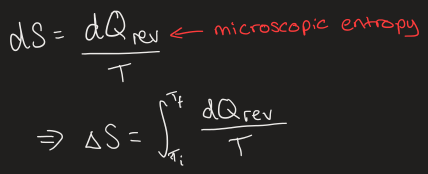 dS = dQrev / T ← microscopic entropy
⇒ ΔS = ∫_{Ti}^{Tf} dQrev / T